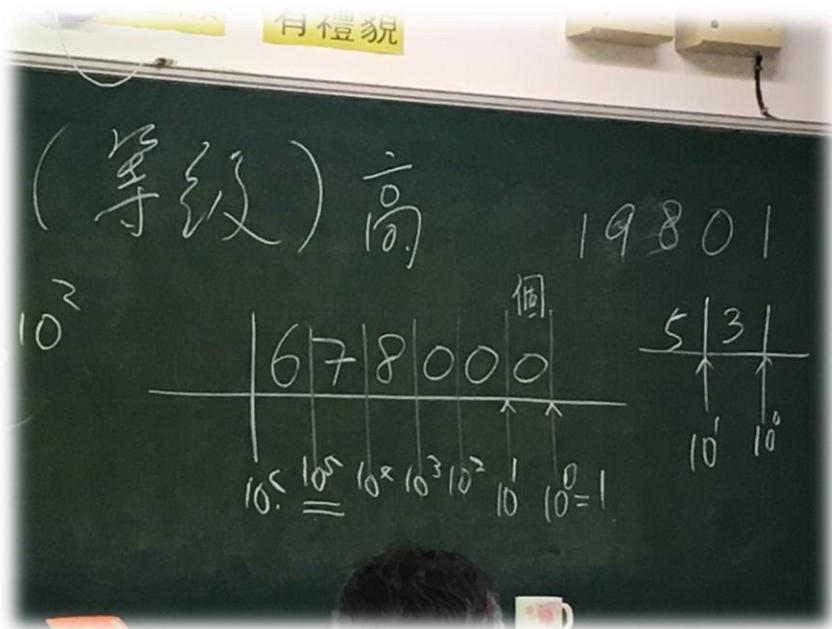 有禮貌
(等級)高
19801
10²
個
678000
5 3
10⁵ 10⁴ 10³ 10² 10¹ 10⁰=1
10¹ 10⁰